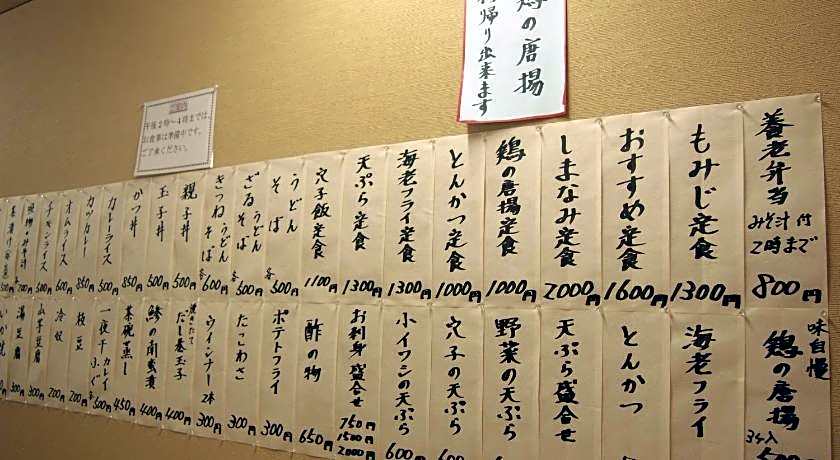 の唐揚
帰り出来ます
午後2時～4時までは、
お食事は準備中です。
ご了承ください。
養老弁当 みそ汁付 2時まで 800円
もみじ定食 1300円
おすすめ定食 1600円
しまなみ定食 2000円
鶏の唐揚定食 1000円
とんかつ定食 1000円
海老フライ定食 1300円
天ぷら定食 1300円
穴子飯定食 1100円
うどん そば 各500円
ざるうどん そば 各500円
きつねうどん そば 各600円
親子丼 500円
玉子丼 500円
かつ丼 850円
カレーライス 500円
カツカレー 850円
オムライス 600円
チキンライス 500円
味自慢 鶏の唐揚 3ヶ入
海老フライ
とんかつ
天ぷら盛合せ
野菜の天ぷら
穴子の天ぷら
小イワシの天ぷら 600円
お刺身盛合せ 750円 1500円 2000円
酢の物 650円
ポテトフライ 300円
たこわさ 300円
ウインナー 2本 300円
焼きたて だし巻玉子 400円
鯵の南蛮漬 400円
茶碗蒸し 450円
一夜干 カレイ ふぐ 各500円
枝豆 200円
冷奴 200円
山芋豆腐 300円
湯豆腐 300円